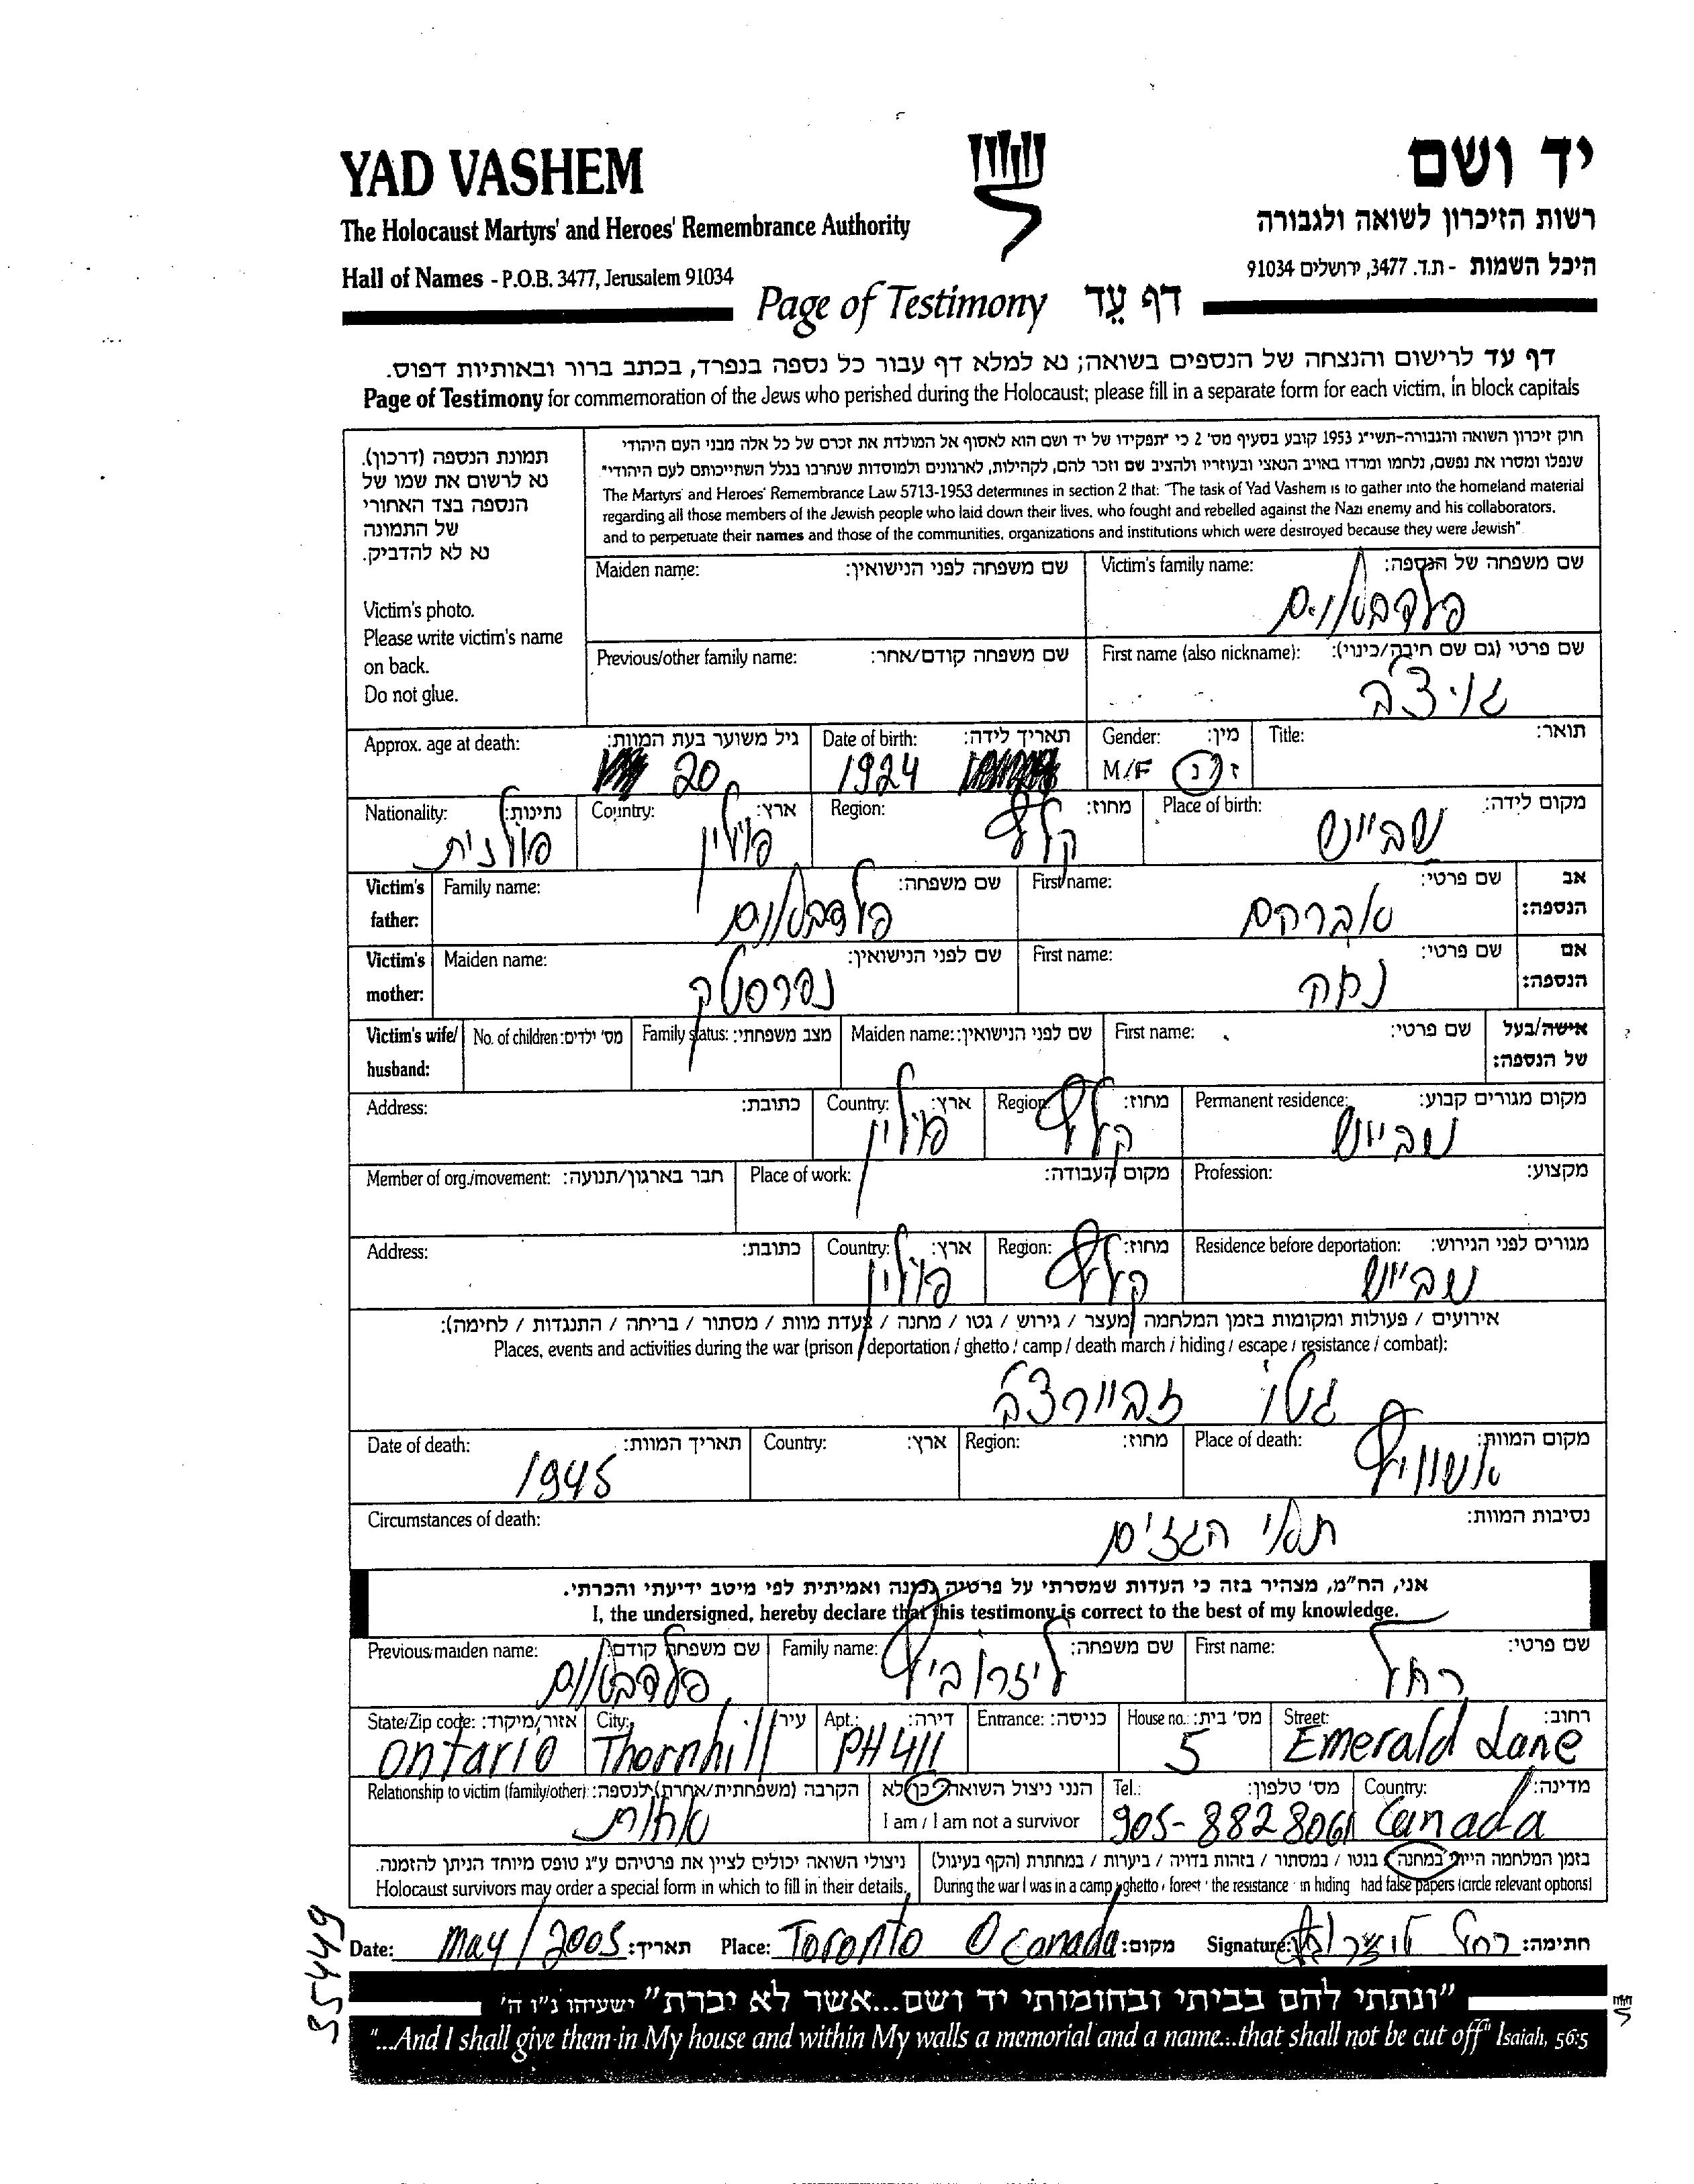 YAD VASHEM
יד ושם
The Holocaust Martyrs' and Heroes' Remembrance Authority
רשות הזיכרון לשואה ולגבורה
Hall of Names - P.O.B. 3477, Jerusalem 91034
היכל השמות - ת.ד. 3477, ירושלים 91034
Page of Testimony דף עֵד
דף עד לרישום והנצחה של הנספים בשואה; נא למלא דף עבור כל נספה בנפרד, בכתב ברור ובאותיות דפוס.
Page of Testimony for commemoration of the Jews who perished during the Holocaust; please fill in a separate form for each victim, in block capitals
תמונת הנספה (דרכון).
נא לרשום את שמו של
הנספה בצד האחורי
של התמונה
נא לא להדביק.
Victim's photo.
Please write victim's name
on back.
Do not glue.
חוק זיכרון השואה והגבורה-תשי"ג 1953 קובע בסעיף מס' 2 כי "תפקידו של יד ושם הוא לאסוף אל המולדת את זכרם של כל אלה מבני העם היהודי
שנפלו ומסרו את נפשם, נלחמו ומרדו באויב הנאצי ובעוזריו ולהציב שם וזכר להם, לקהילות, לארגונים ולמוסדות שנחרבו בגלל השתייכותם לעם היהודי"
The Martyrs' and Heroes' Remembrance Law 5713-1953 determines in section 2 that: "The task of Yad Vashem is to gather into the homeland material
regarding all those members of the Jewish people who laid down their lives, who fought and rebelled against the Nazi enemy and his collaborators,
and to perpetuate their names and those of the communities, organizations and institutions which were destroyed because they were Jewish".
Maiden name: שם משפחה לפני הנישואין:
Victim's family name: שם משפחה של הנספה:
פלדבאום
Previous/other family name: שם משפחה קודם/אחר:
First name (also nickname): שם פרטי (גם שם חיבה/כינוי):
Approx. age at death: גיל משוער בעת המוות:
20
Date of birth: תאריך לידה:
1924
Gender: מין:
M/F ז/נ
Title: תואר:
Nationality: נתינות:
פולנית
Country: ארץ:
פולין
Region: מחוז:
קלץ
Place of birth: מקום לידה:
Victim's father: Family name: שם משפחה:
פלדבאום
First name: שם פרטי:
אברהם
אב הנספה:
Victim's mother: Maiden name: שם לפני הנישואין:
First name: שם פרטי:
אם הנספה:
Victim's wife/ husband: No. of children: מס' ילדים: Family status: מצב משפחתי: Maiden name: שם לפני הנישואין: First name: שם פרטי: אישה/בעל של הנספה:
Address: כתובת:
Country: ארץ:
פולין
Region: מחוז:
קלץ
Permanent residence: מקום מגורים קבוע:
Member of org./movement: חבר בארגון/תנועה: Place of work: מקום העבודה: Profession: מקצוע:
Address: כתובת:
Country: ארץ:
פולין
Region: מחוז:
קלץ
Residence before deportation: מגורים לפני הגירוש:
אירועים / פעולות ומקומות בזמן המלחמה (מעצר / גירוש / גטו / מחנה / צעדת מוות / מסתור / בריחה / התנגדות / לחימה):
Places, events and activities during the war (prison / deportation / ghetto / camp / death march / hiding / escape / resistance / combat):
גטו
Date of death: תאריך המוות:
1945
Country: ארץ: Region: מחוז:
Place of death: מקום המוות:
אושוויץ
Circumstances of death: נסיבות המוות:
תאי הגזים
אני, הח"מ, מצהיר בזה כי העדות שמסרתי על פרטיה נכונה ואמיתית לפי מיטב ידיעתי והכרתי.
I, the undersigned, hereby declare that this testimony is correct to the best of my knowledge.
Previous/maiden name: שם משפחה קודם:
פלדבאום
Family name: שם משפחה:
First name: שם פרטי:
רחל
State/Zip code: אזור/מיקוד:
Ontario
City: עיר:
Thornhill
Apt.: דירה:
PH 411
Entrance: כניסה:
House no.: מס' בית:
5
Street: רחוב:
Emerald Lane
Relationship to victim (family/other): הקרבה (משפחתית/אחרת) לנספה:
אחות
הנני ניצול השואה: כן/לא
I am / I am not a survivor
Tel.: מס' טלפון:
905-8828061
Country: מדינה:
Canada
ניצולי השואה יכולים לציין את פרטיהם ע"ג טופס מיוחד הניתן להזמנה.
Holocaust survivors may order a special form in which to fill in their details.
בזמן המלחמה הייתי במחנה / בגטו / במסתור / בזהות בדויה / ביערות / במחתרת (הקף בעיגול)
During the war I was in a camp / ghetto / forest / the resistance / in hiding / had false papers (circle relevant options)
Date: May/2005 תאריך: Place: Toronto Canada מקום: Signature: רחל חתימה:
35449
"ונתתי להם בביתי ובחומותי יד ושם...אשר לא יכרת" ישעיהו נ"ו ה'
"...And I shall give them in My house and within My walls a memorial and a name...that shall not be cut off" Isaiah, 56:5